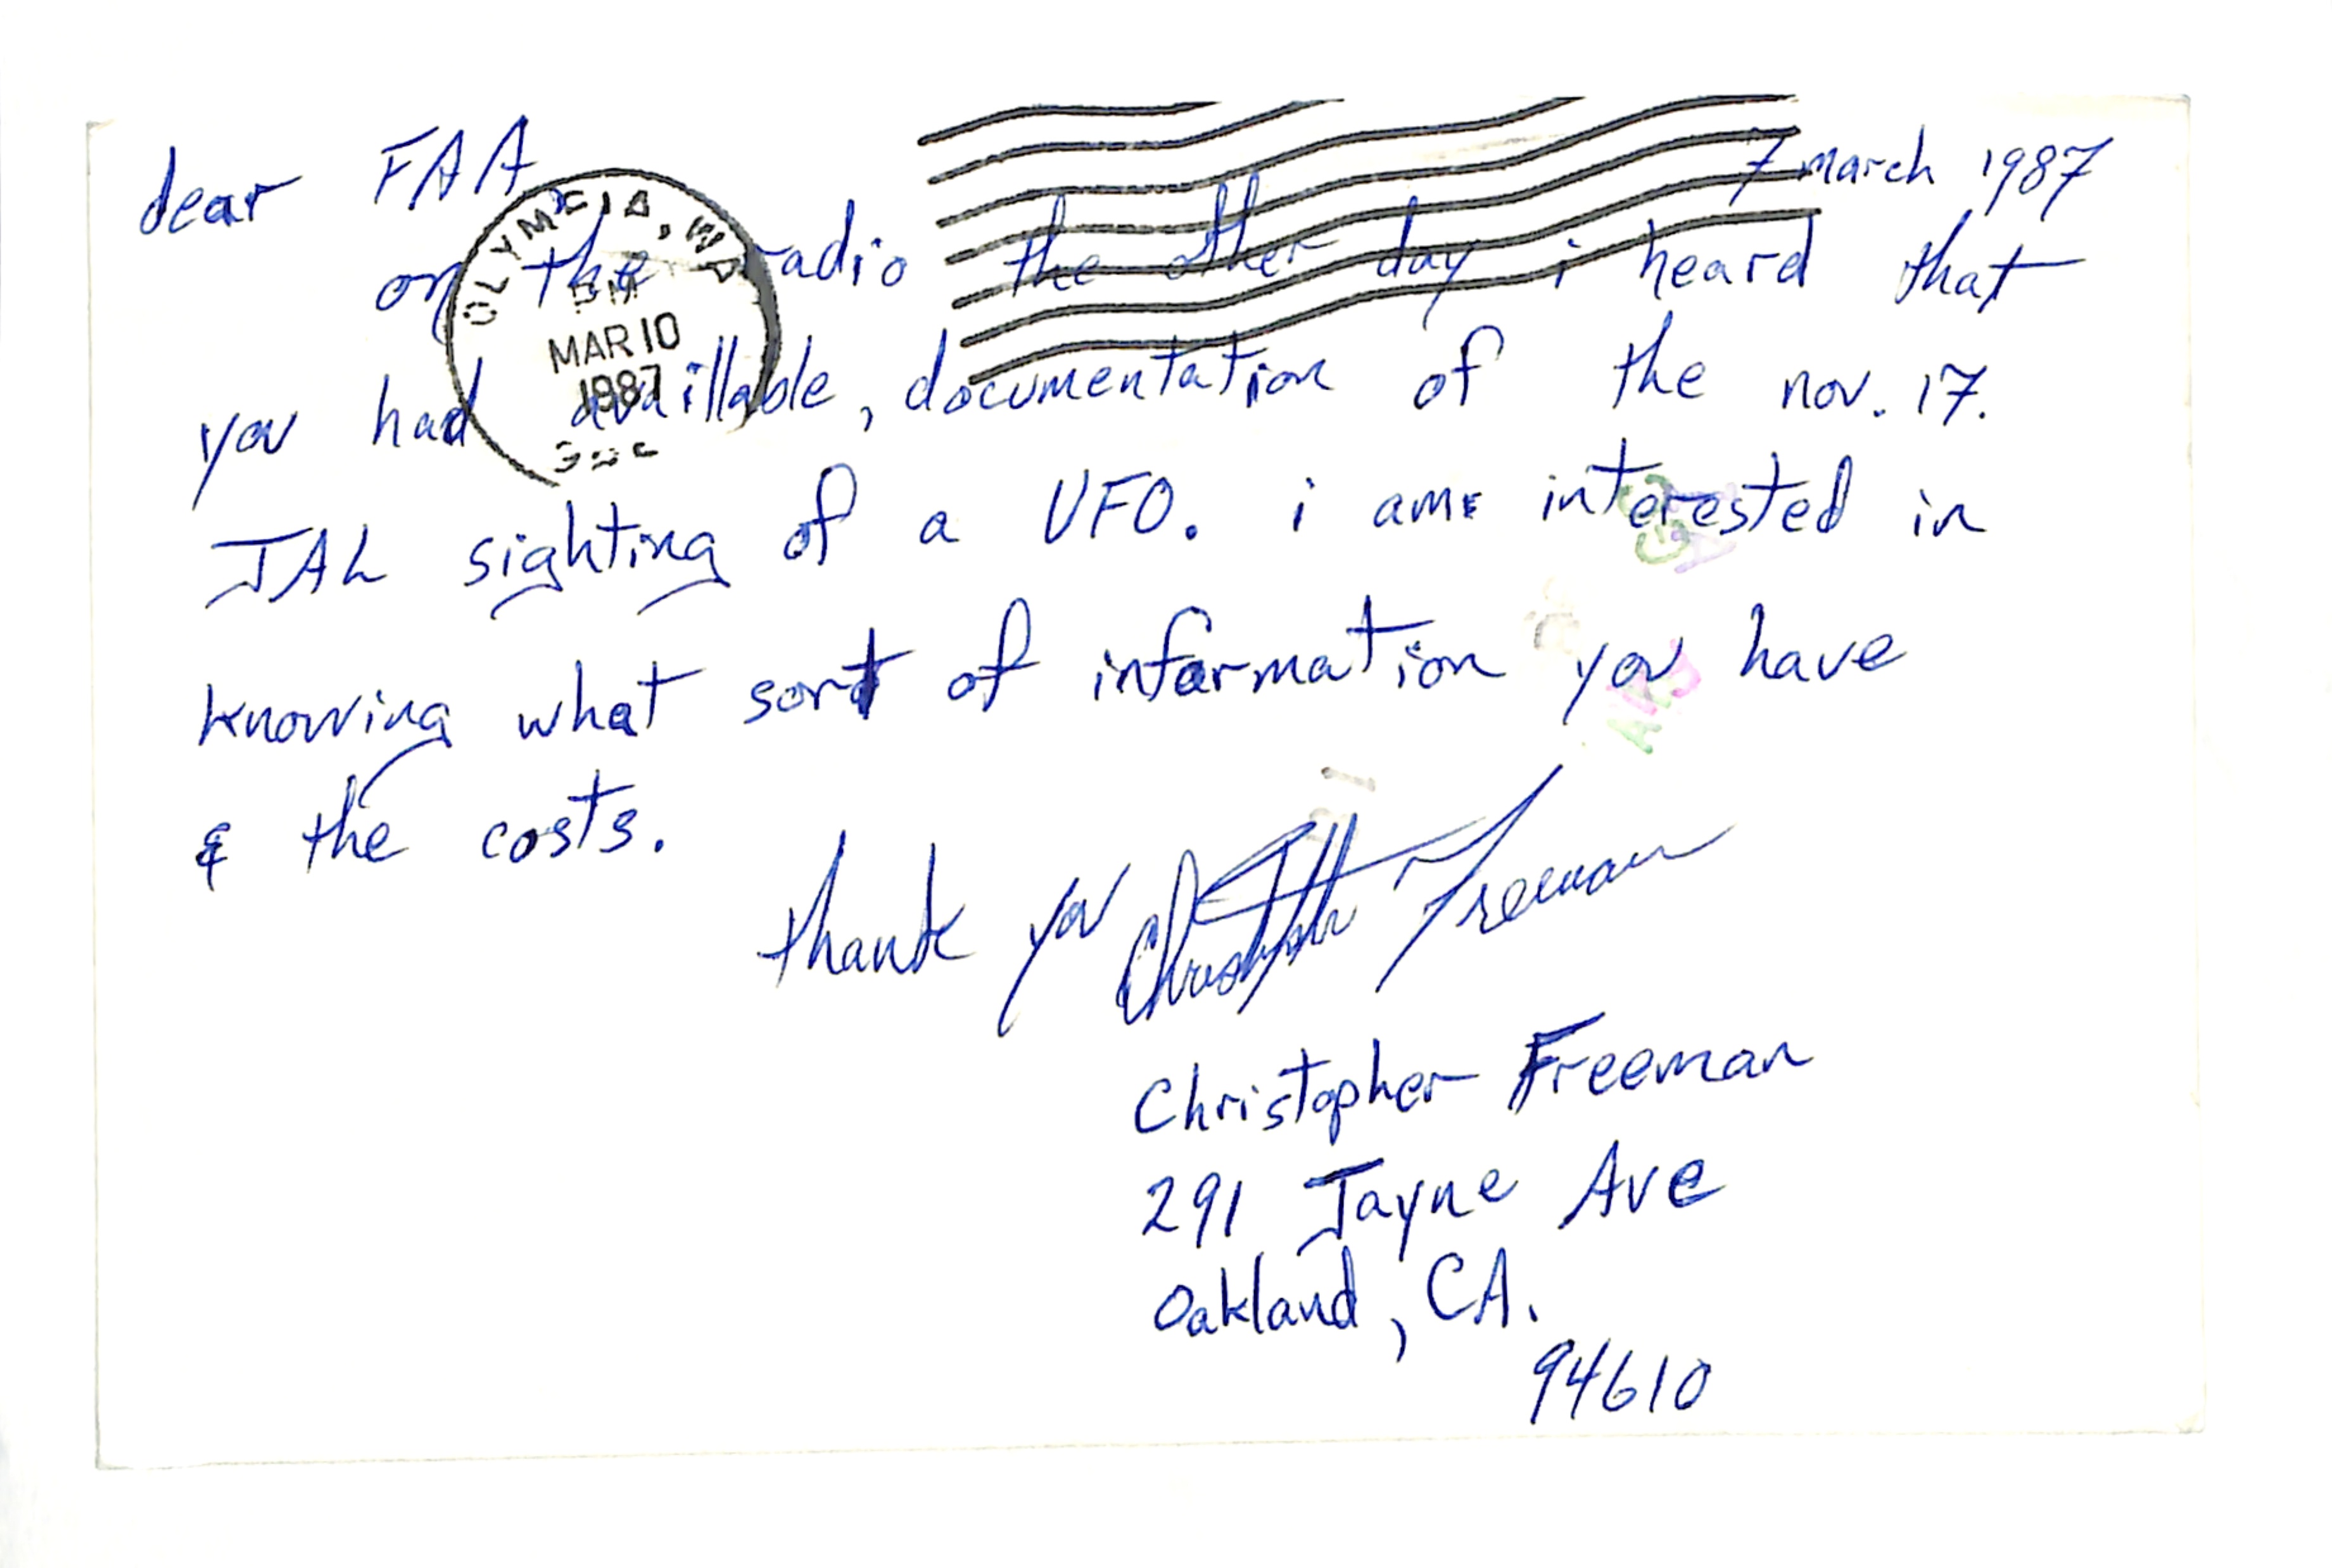 dear FAA,
7 march 1987
on the radio the other day i heard that
you had availlable, documentation of the nov. 17.
JAL sighting of a UFO. i am interested in
knowing what sort of information you have
& the costs.
thank you Christopher Freeman
Christopher Freeman
291 Jayne Ave
Oakland, CA.
94610
OLYMPIA, WA
PM
MAR 10
1987